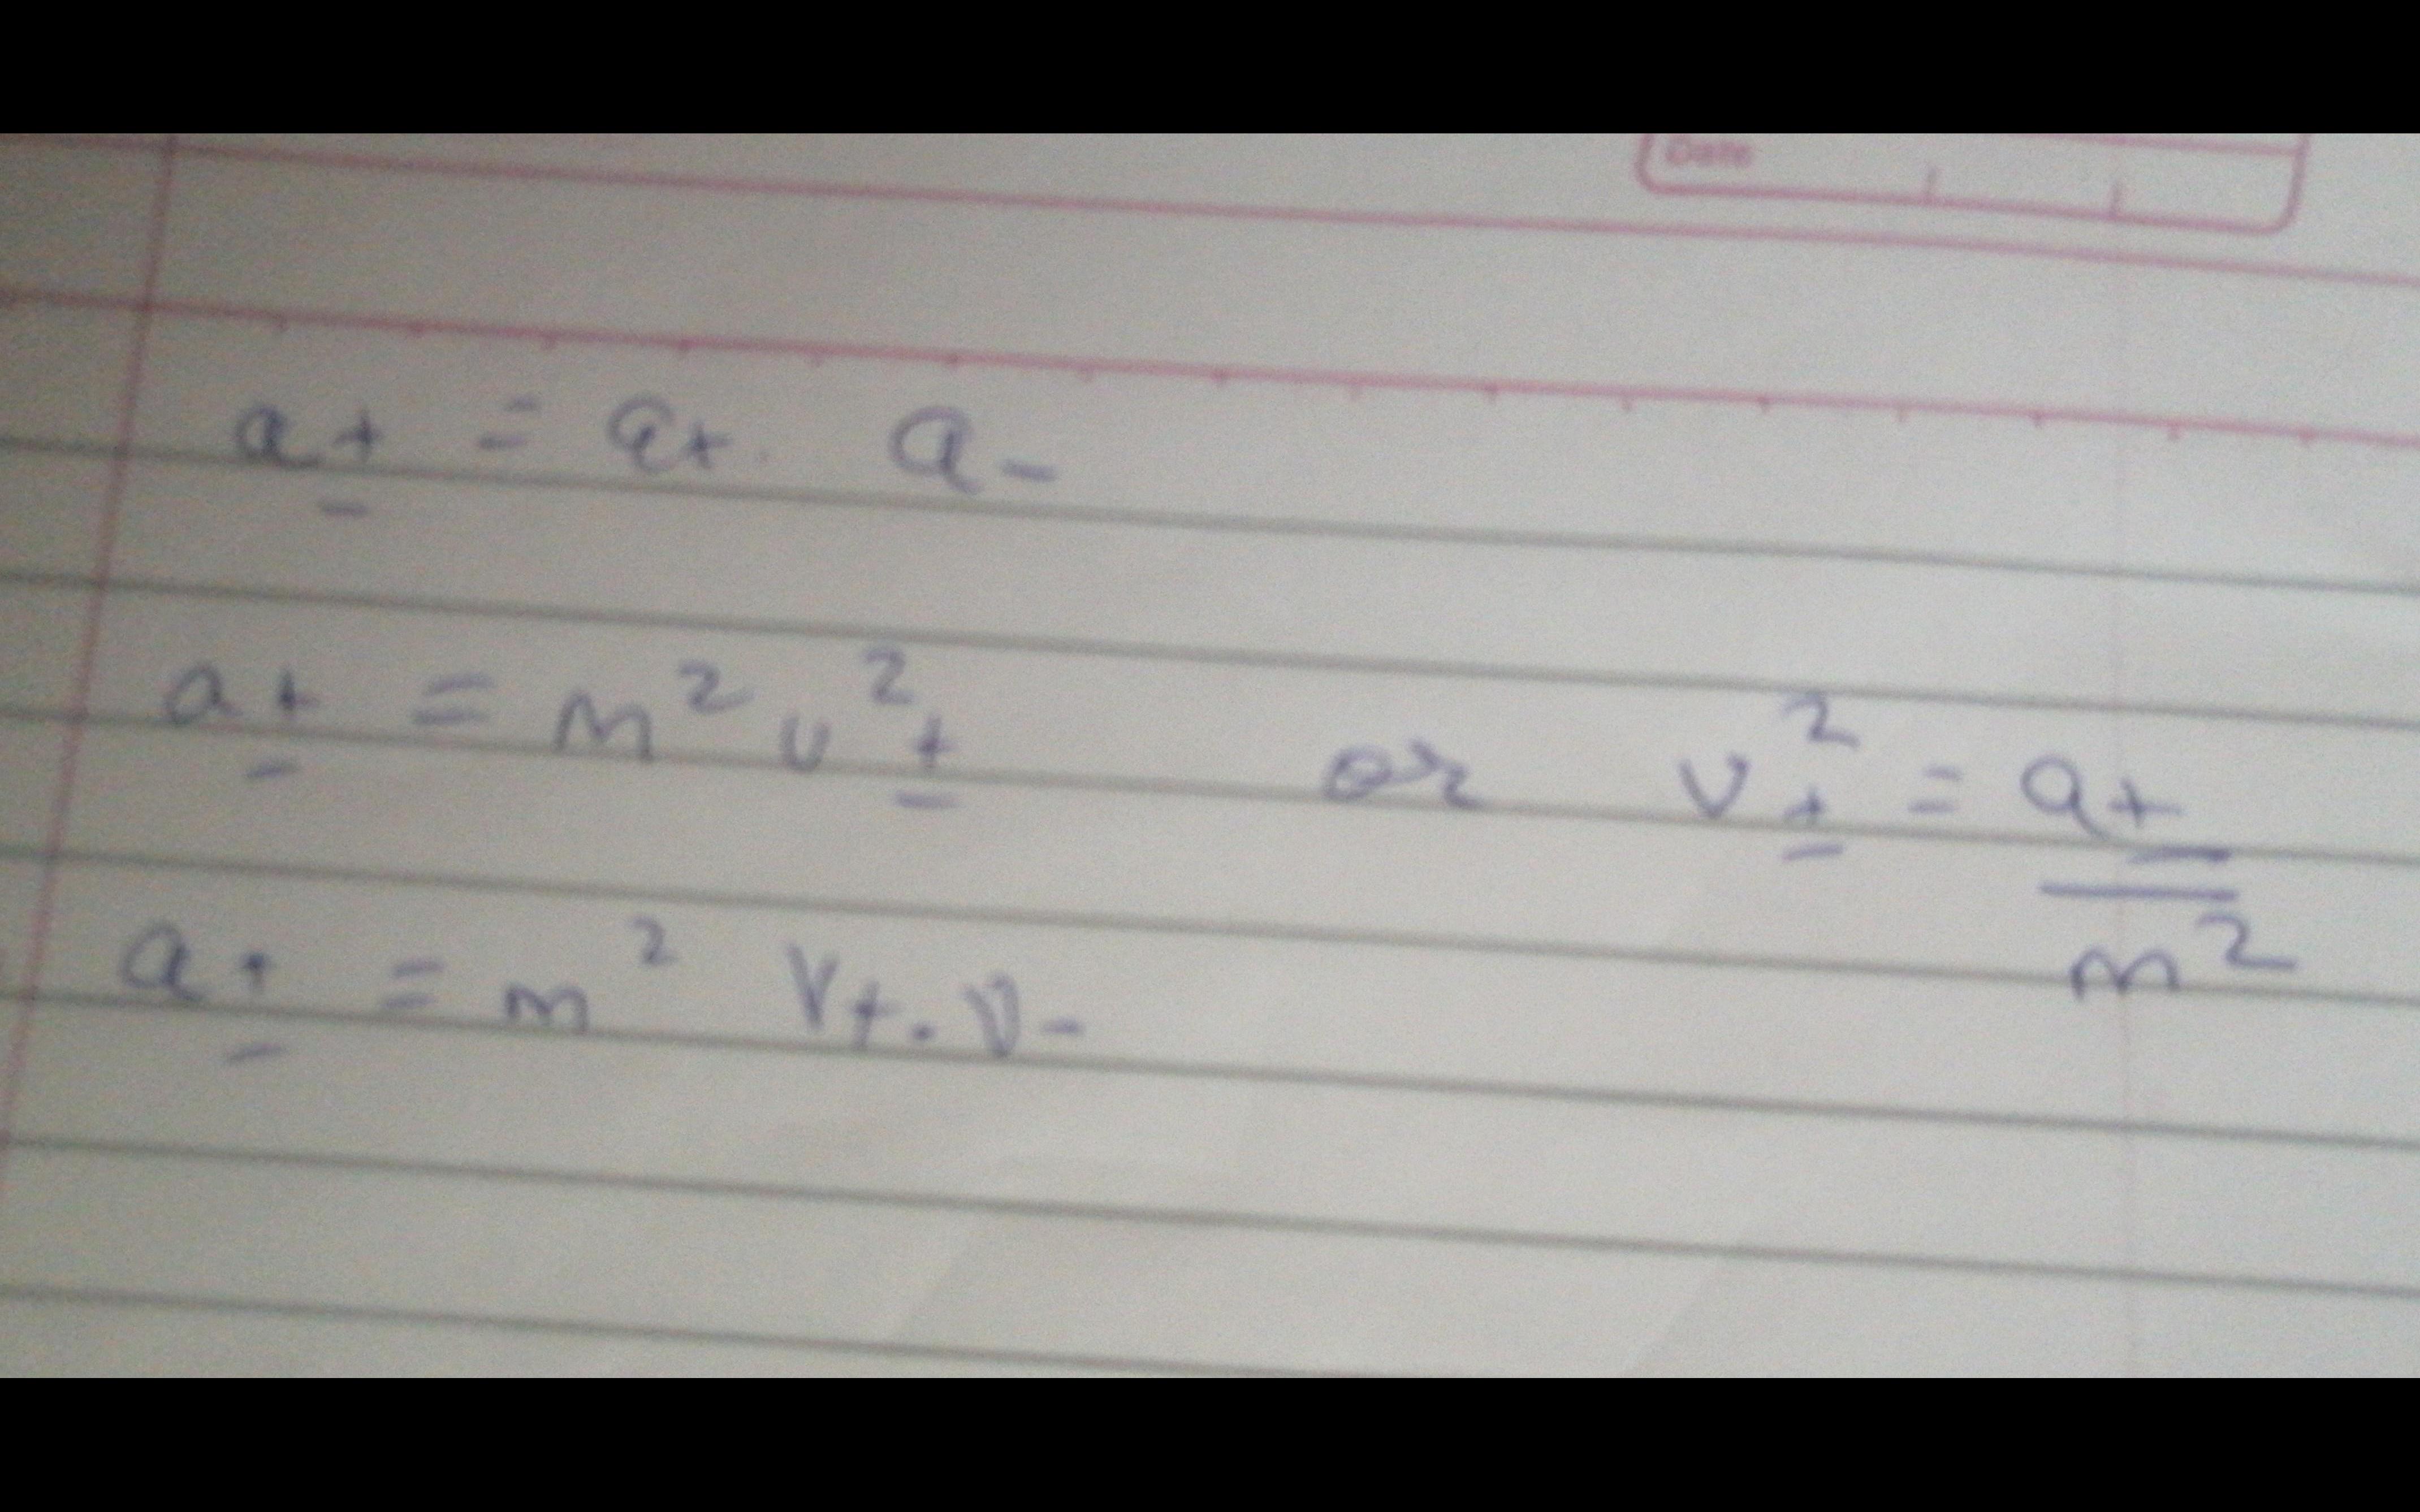 Date
a± = a+. a-
a± = m² v²± or v²± = a±/m²
a± = m² v+. v-